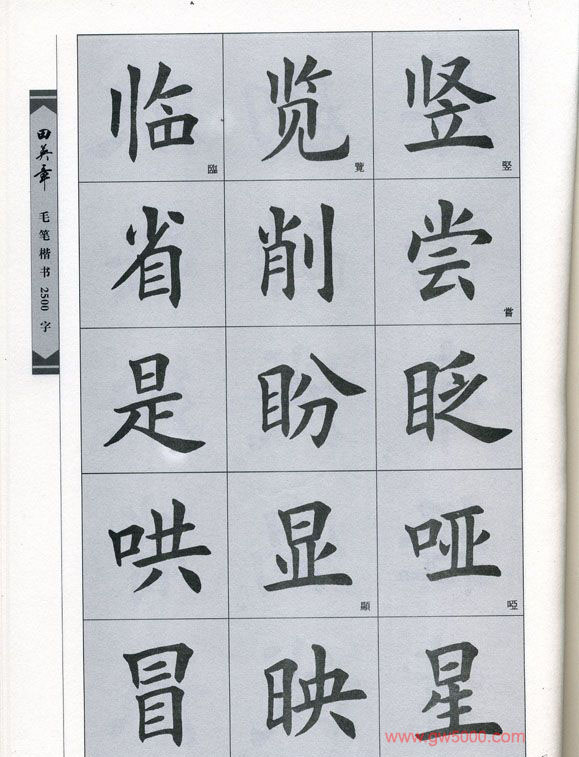 田英章
毛笔楷书2500字
临 臨 览 覽 竖 竪
省 削 尝 嘗
是 盼 眨
哄 显 顯 哑 啞
冒 映 星
www.gw5000.com